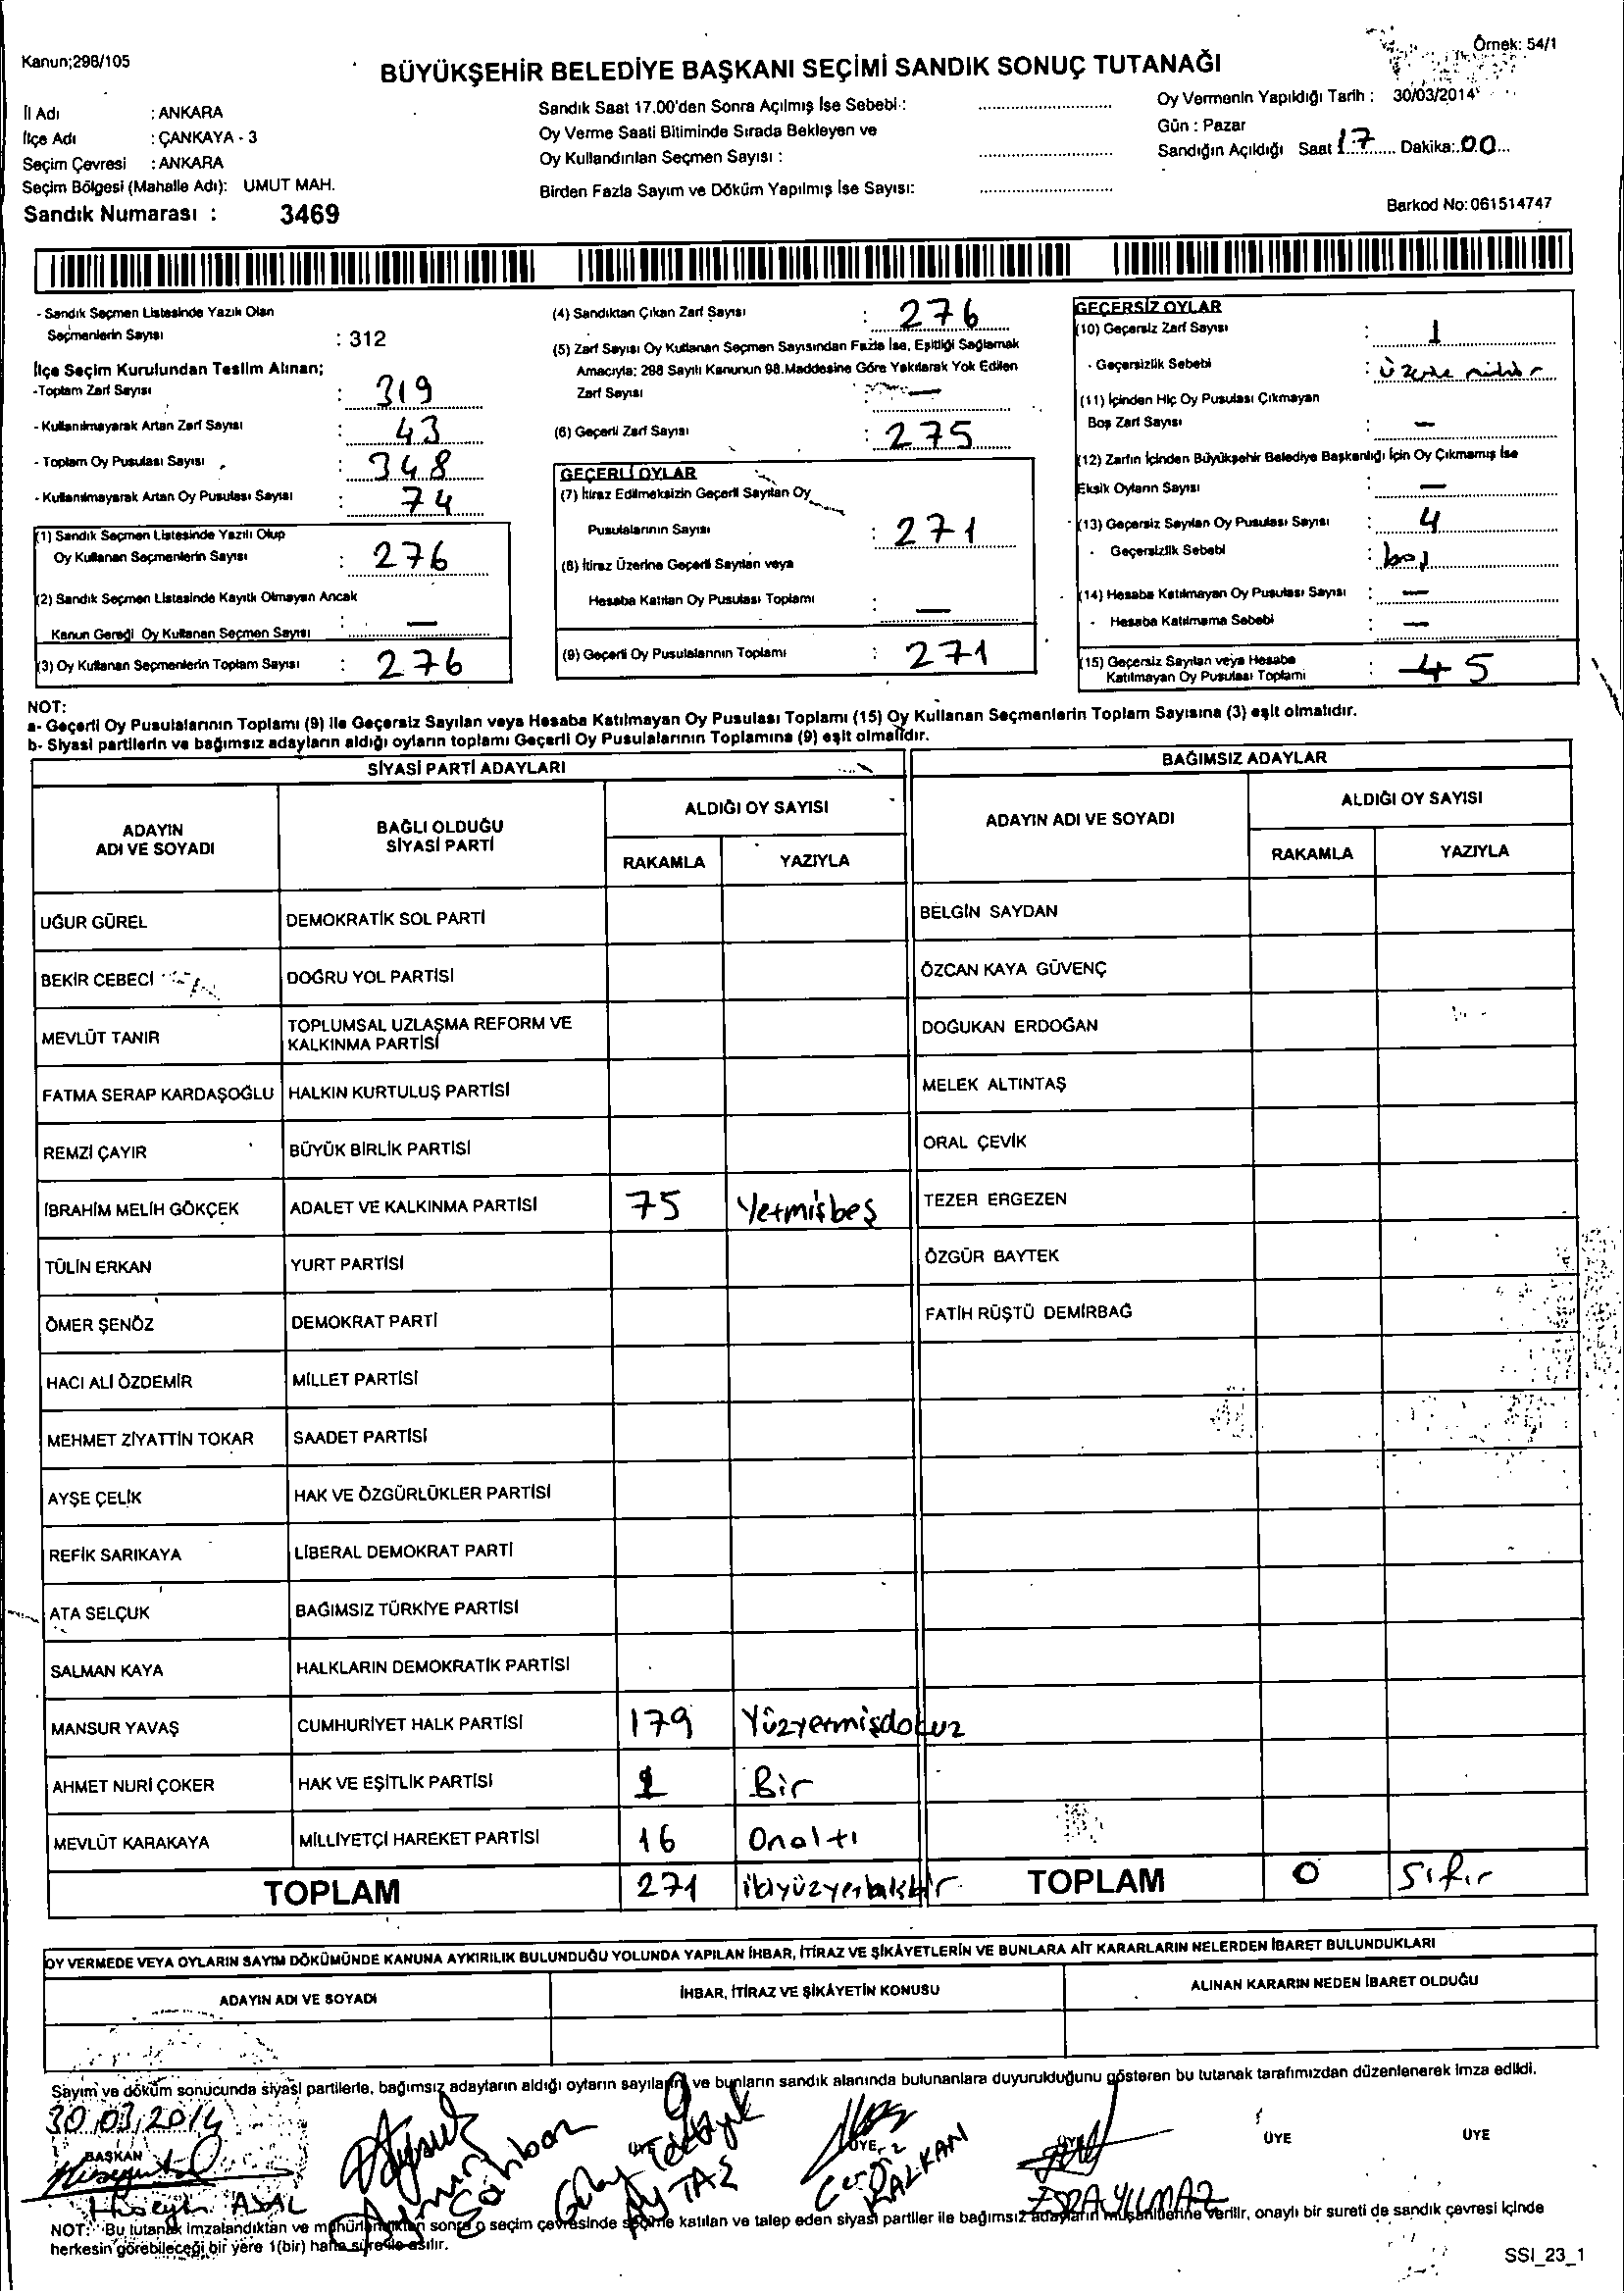 Kanun;298/105
Örnek: 54/1
BÜYÜKŞEHİR BELEDİYE BAŞKANI SEÇİMİ SANDIK SONUÇ TUTANAĞI
İl Adı : ANKARA
İlçe Adı : ÇANKAYA - 3
Seçim Çevresi : ANKARA
Seçim Bölgesi (Mahalle Adı): UMUT MAH.
Sandık Numarası : 3469
Sandık Saat 17.00'den Sonra Açılmış İse Sebebi :
Oy Verme Saati Bitiminde Sırada Bekleyen ve
Oy Kullandırılan Seçmen Sayısı :
Birden Fazla Sayım ve Döküm Yapılmış İse Sayısı:
Oy Vermenin Yapıldığı Tarih : 30/03/2014
Gün : Pazar
Sandığın Açıldığı Saat 17 Dakika: 00
Barkod No: 061514747
- Sandık Seçmen Listesinde Yazılı Olan
Seçmenlerin Sayısı : 312
İlçe Seçim Kurulundan Teslim Alınan;
-Toplam Zarf Sayısı : 319
- Kullanılmayarak Artan Zarf Sayısı : 43
- Toplam Oy Pusulası Sayısı : 348
- Kullanılmayarak Artan Oy Pusulası Sayısı : 74
(1) Sandık Seçmen Listesinde Yazılı Olup
Oy Kullanan Seçmenlerin Sayısı : 276
(2) Sandık Seçmen Listesinde Kayıtlı Olmayan Ancak
Kanun Gereği Oy Kullanan Seçmen Sayısı : —
(3) Oy Kullanan Seçmenlerin Toplam Sayısı : 276
(4) Sandıktan Çıkan Zarf Sayısı : 276
(5) Zarf Sayısı Oy Kullanan Seçmen Sayısından Fazla İse, Eşitliği Sağlamak
Amacıyla; 298 Sayılı Kanunun 98.Maddesine Göre Yakılarak Yok Edilen
Zarf Sayısı : —
(6) Geçerli Zarf Sayısı : 275
GEÇERLİ OYLAR
(7) İtiraz Edilmeksizin Geçerli Sayılan Oy
Pusulalarının Sayısı : 271
(8) İtiraz Üzerine Geçerli Sayılan veya
Hesaba Katılan Oy Pusulası Toplamı : —
(9) Geçerli Oy Pusulalarının Toplamı : 271
GEÇERSİZ OYLAR
(10) Geçersiz Zarf Sayısı : 1
- Geçersizlik Sebebi :
(11) İçinden Hiç Oy Pusulası Çıkmayan
Boş Zarf Sayısı : —
(12) Zarfın İçinden Büyükşehir Belediye Başkanlığı İçin Oy Çıkmamış İse
Eksik Oyların Sayısı : —
(13) Geçersiz Sayılan Oy Pusulası Sayısı : 4
- Geçersizlik Sebebi : boş
(14) Hesaba Katılmayan Oy Pusulası Sayısı : —
- Hesaba Katılmama Sebebi : —
(15) Geçersiz Sayılan veya Hesaba
Katılmayan Oy Pusulası Toplamı : 5
NOT:
a- Geçerli Oy Pusulalarının Toplamı (9) ile Geçersiz Sayılan veya Hesaba Katılmayan Oy Pusulası Toplamı (15) Oy Kullanan Seçmenlerin Toplam Sayısına (3) eşit olmalıdır.
b- Siyasi partilerin ve bağımsız adayların aldığı oyların toplamı Geçerli Oy Pusulalarının Toplamına (9) eşit olmalıdır.
SİYASİ PARTİ ADAYLARI
BAĞIMSIZ ADAYLAR
ADAYIN ADI VE SOYADI
BAĞLI OLDUĞU SİYASİ PARTİ
ALDIĞI OY SAYISI
RAKAMLA YAZIYLA
ADAYIN ADI VE SOYADI
ALDIĞI OY SAYISI
RAKAMLA YAZIYLA
UĞUR GÜREL DEMOKRATİK SOL PARTİ BELGİN SAYDAN
BEKİR CEBECİ DOĞRU YOL PARTİSİ ÖZCAN KAYA GÜVENÇ
MEVLÜT TANIR TOPLUMSAL UZLAŞMA REFORM VE KALKINMA PARTİSİ DOĞUKAN ERDOĞAN
FATMA SERAP KARDAŞOĞLU HALKIN KURTULUŞ PARTİSİ MELEK ALTINTAŞ
REMZİ ÇAYIR BÜYÜK BİRLİK PARTİSİ ORAL ÇEVİK
İBRAHİM MELİH GÖKÇEK ADALET VE KALKINMA PARTİSİ 75 Yetmişbeş TEZER ERGEZEN
TÜLİN ERKAN YURT PARTİSİ ÖZGÜR BAYTEK
ÖMER ŞENÖZ DEMOKRAT PARTİ FATİH RÜŞTÜ DEMİRBAĞ
HACI ALİ ÖZDEMİR MİLLET PARTİSİ
MEHMET ZİYATTİN TOKAR SAADET PARTİSİ
AYŞE ÇELİK HAK VE ÖZGÜRLÜKLER PARTİSİ
REFİK SARIKAYA LİBERAL DEMOKRAT PARTİ
ATA SELÇUK BAĞIMSIZ TÜRKİYE PARTİSİ
SALMAN KAYA HALKLARIN DEMOKRATİK PARTİSİ
MANSUR YAVAŞ CUMHURİYET HALK PARTİSİ 179 Yüzyetmişdokuz
AHMET NURİ ÇOKER HAK VE EŞİTLİK PARTİSİ 1 Bir
MEVLÜT KARAKAYA MİLLİYETÇİ HAREKET PARTİSİ 16 Onaltı
TOPLAM 271 TOPLAM 0 Sıfır
OY VERMEDE VEYA OYLARIN SAYIM DÖKÜMÜNDE KANUNA AYKIRILIK BULUNDUĞU YOLUNDA YAPILAN İHBAR, İTİRAZ VE ŞİKÂYETLERİN VE BUNLARA AİT KARARLARIN NELERDEN İBARET BULUNDUKLARI
ADAYIN ADI VE SOYADI İHBAR, İTİRAZ VE ŞİKÂYETİN KONUSU ALINAN KARARIN NEDEN İBARET OLDUĞU
Sayım ve döküm sonucunda siyasi partilerle, bağımsız adayların aldığı oyların sayıların ve bunların sandık alanında bulunanlara duyurulduğunu gösteren bu tutanak tarafımızdan düzenlenerek imza edildi.
30.03.2014
BAŞKAN ÜYE ÜYE ÜYE ÜYE
KALKAN
ESRA YILMAZ
NOT: Bu tutanak imzalandıktan ve mühürlendikten sonra o seçim çevresinde seçime katılan ve talep eden siyasi partiler ile bağımsız adayların müşahitlerine verilir, onaylı bir sureti de sandık çevresi içinde
herkesin görebileceği bir yere 1(bir) hafta süre ile asılır.
SSI_23_1